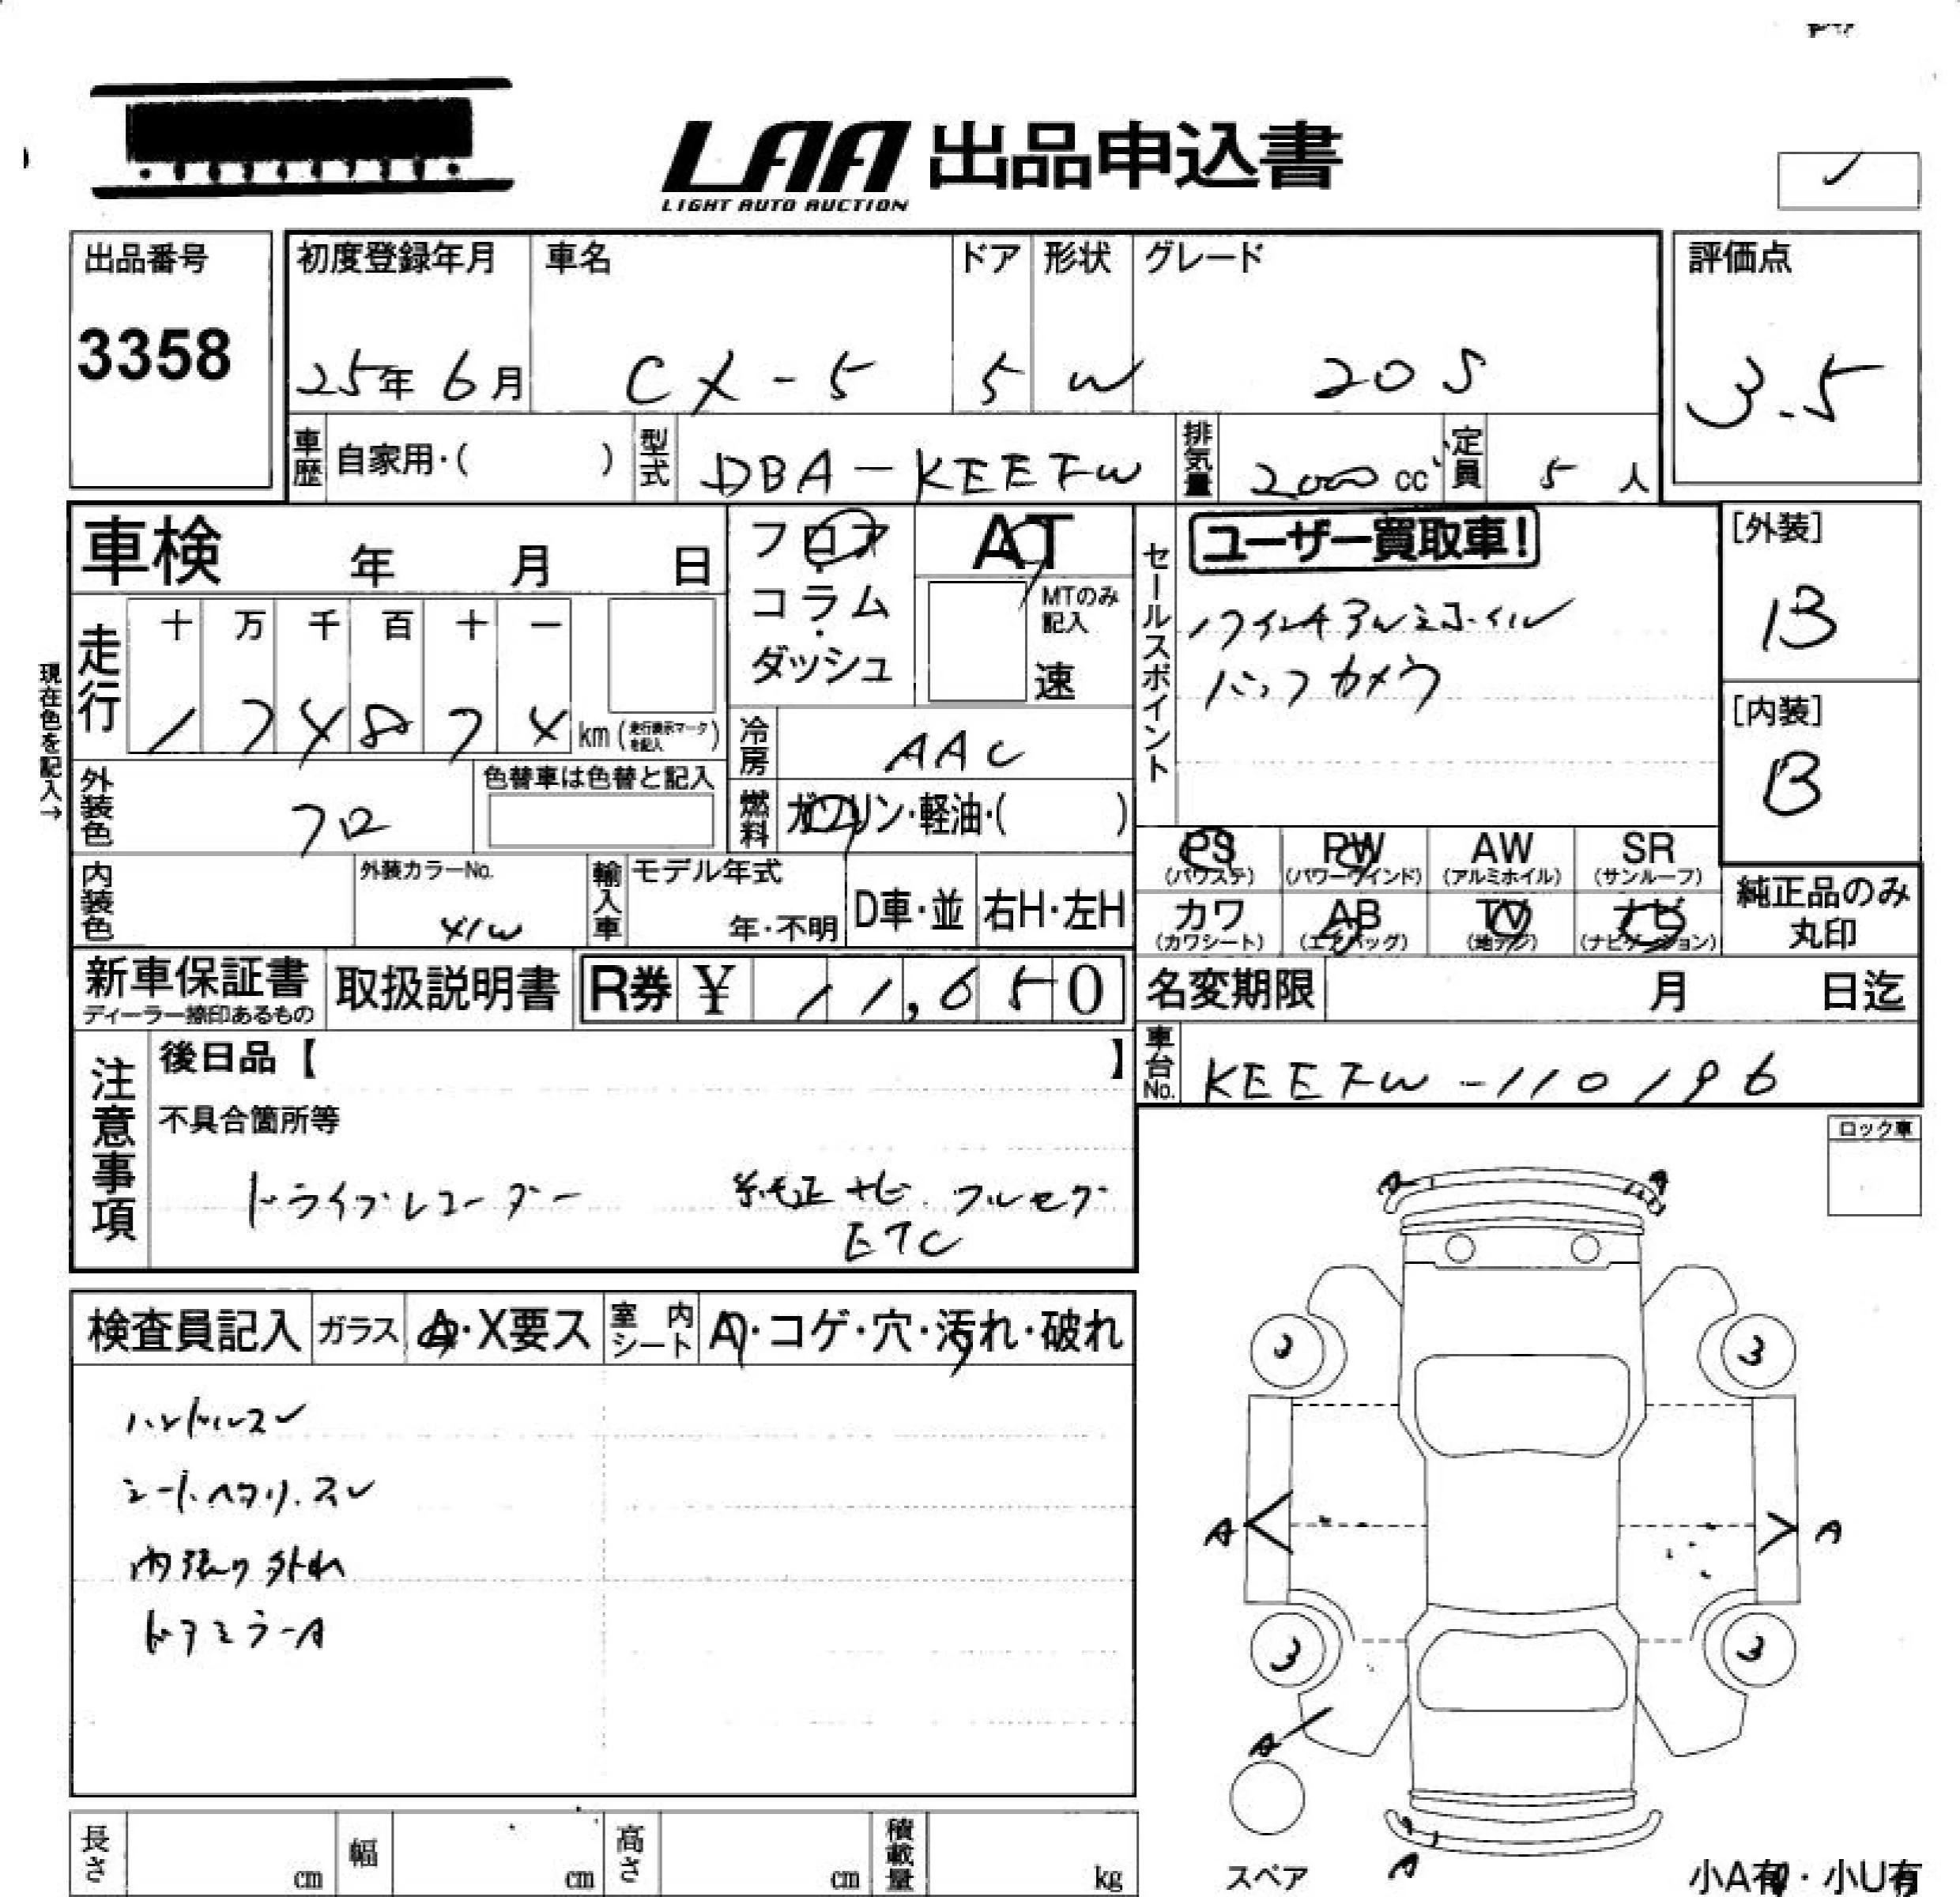 LAA 出品申込書
LIGHT AUTO AUCTION
出品番号
3358
初度登録年月
25年 6月
車名
CX-5
ドア
5
形状
W
グレード
20S
評価点
3.5
車歴 自家用・( )
型式 DBA-KEEFW
排気量 2000 cc
定員 5 人
車検 年 月 日
フロア・コラム・ダッシュ
AT
MTのみ記入
速
セールスポイント
ユーザー買取車!
17インチアルミホイル
バックカメラ
[外装]
B
[内装]
B
現在色を記入→
走行
十 万 千 百 十 一
1 7 4 8 7 4 km (走行表示マークを記入)
冷房 AAC
外装色 クロ
色替車は色替と記入
燃料 ガソリン・軽油・( )
内装色
外装カラーNo.
41W
輸入車
モデル年式
年・不明
D車・並
右H・左H
PS (パワステ)
PW (パワーウインド)
AW (アルミホイル)
SR (サンルーフ)
カワ (カワシート)
AB (エアバッグ)
TV (地デジ)
ナビ (ナビゲーション)
純正品のみ丸印
新車保証書
ディーラー捺印あるもの
取扱説明書
R券 ¥ 11,650
名変期限 月 日迄
車台No. KEEFW-110196
注意事項
後日品【 】
不具合箇所等
ドライブレコーダー 純正ナビ.フルセグ
ETC
ロック車
検査員記入
ガラス A・X要ス
室内シート A・コゲ・穴・汚れ・破れ
ハンドルスレ
シートヘタリ.スレ
内張り外れ
ドアミラーA
A A
3
3 3
A A
A
A
スペア
小A有・小U有
長さ cm
幅 cm
高さ cm
積載量 kg